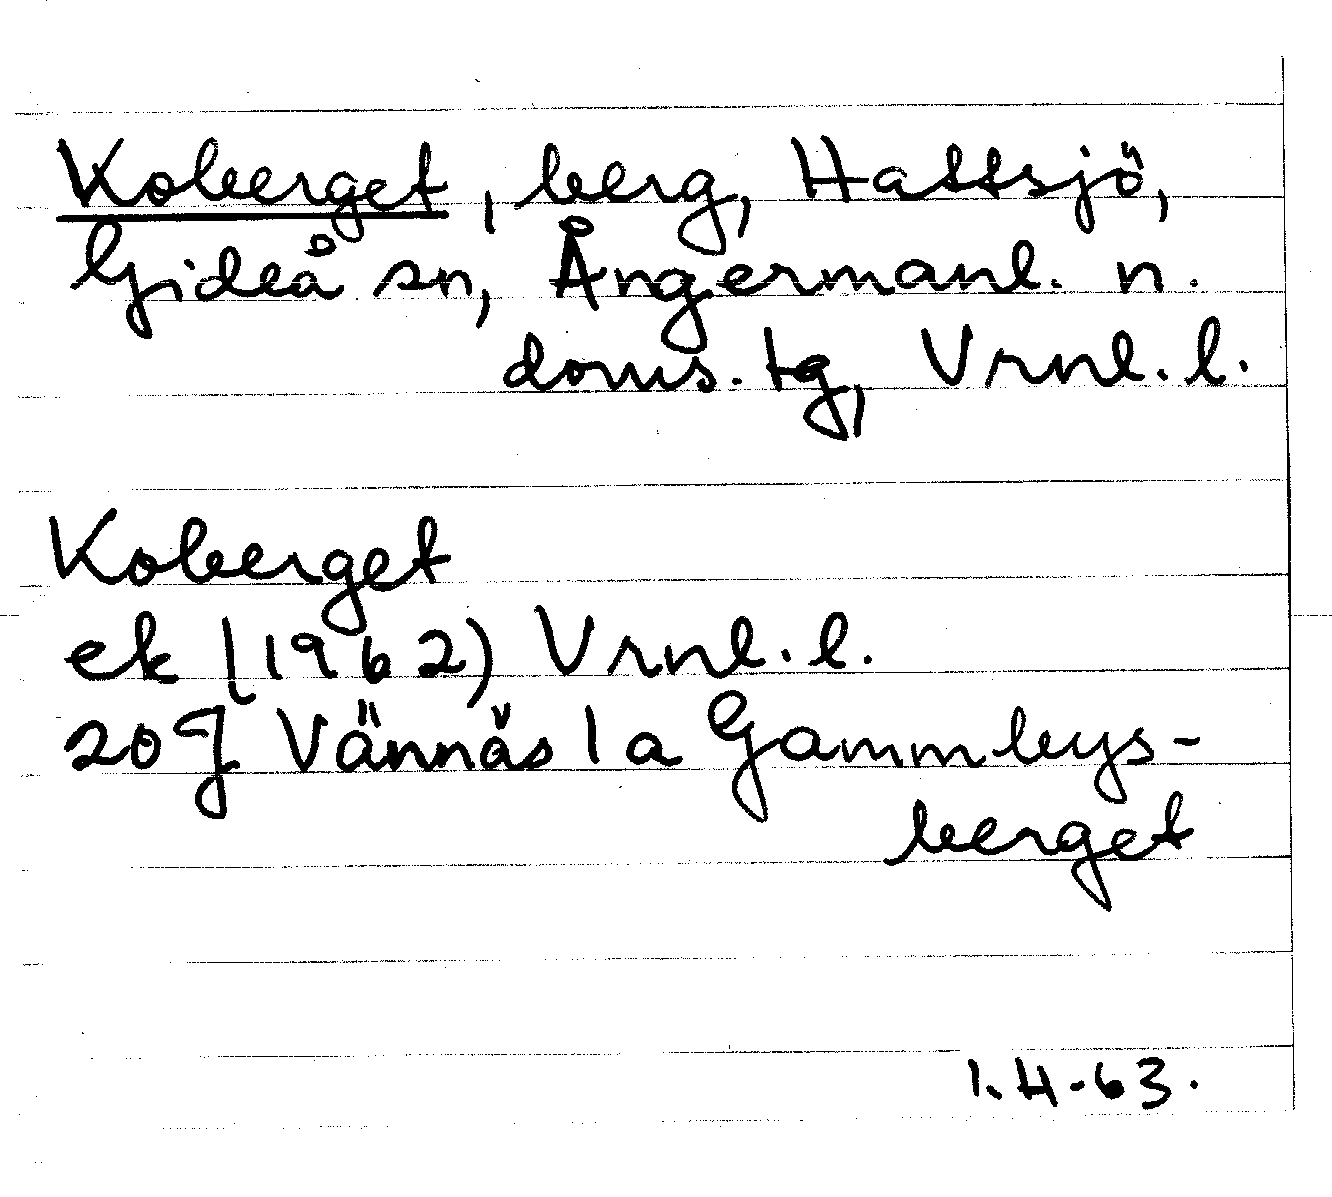 Koberget, berg, Hattsjö,
Gideå sn, Ångermanl. n.
doms. tg, Vrnl. l.
Koberget
ek (1962) Vrnl. l.
20 J Vännäs 1 a Gammbys-
berget
1.4-63.